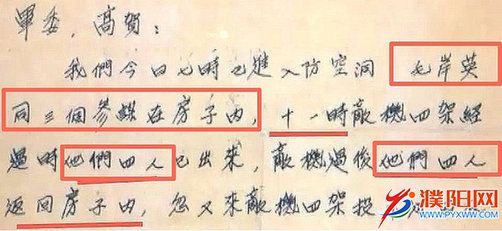 軍委,高賀:
我們今日七時已進入防空洞 毛岸英
同三個參謀在房子內,十一時敵機四架經
過時他們四人已出來,敵機過後他們四人
返回房子內,忽又來敵機四架投
濮阳网
WWW.PYXWW.COM